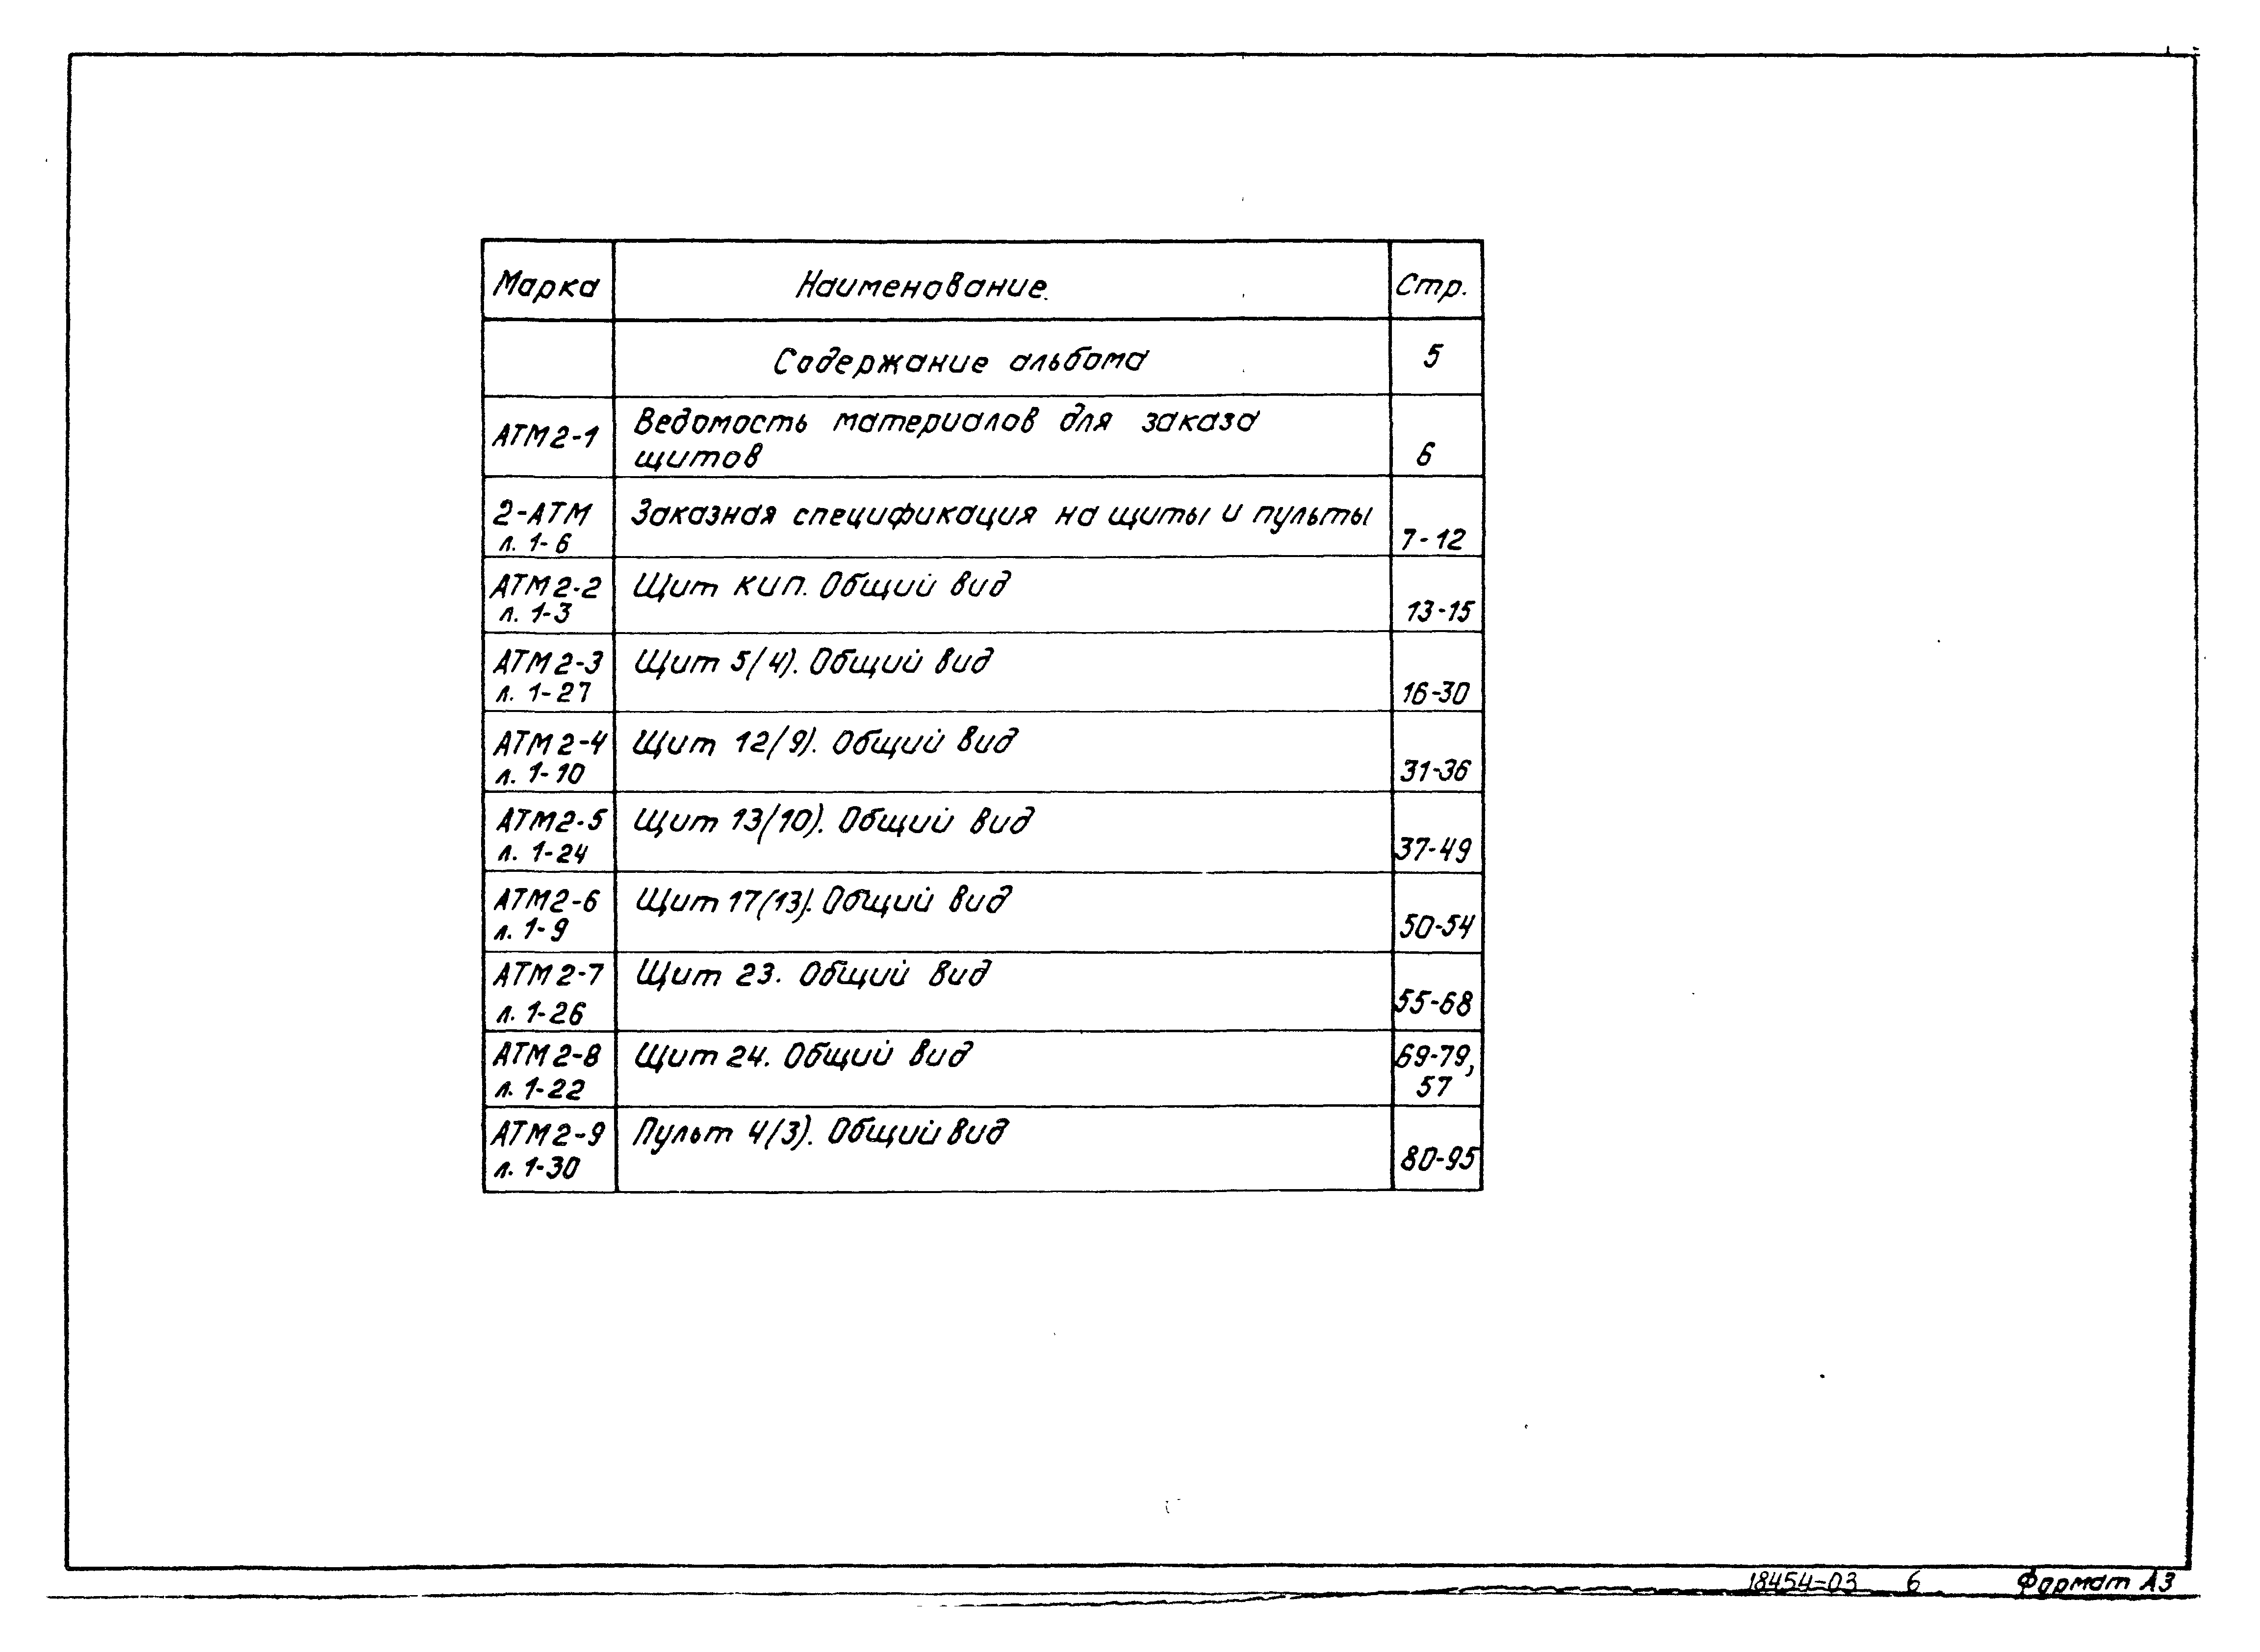 Марка Наименование. Стр.
Содержание альбома 5
АТМ2-1 Ведомость материалов для заказа
щитов 6
2-АТМ Заказная спецификация на щиты и пульты
л. 1-6 7-12
АТМ2-2 Щит КИП. Общий вид
л. 1-3 13-15
АТМ2-3 Щит 5(4). Общий вид
л. 1-27 16-30
АТМ2-4 Щит 12(9). Общий вид
л. 1-10 31-36
АТМ2-5 Щит 13(10). Общий вид
л. 1-24 37-49
АТМ2-6 Щит 17(13). Общий вид
л. 1-9 50-54
АТМ2-7 Щит 23. Общий вид
л. 1-26 55-68
АТМ2-8 Щит 24. Общий вид 69-79,
л. 1-22 57
АТМ2-9 Пульт 4(3). Общий вид
л. 1-30 80-95
18454-03 6 Формат А3